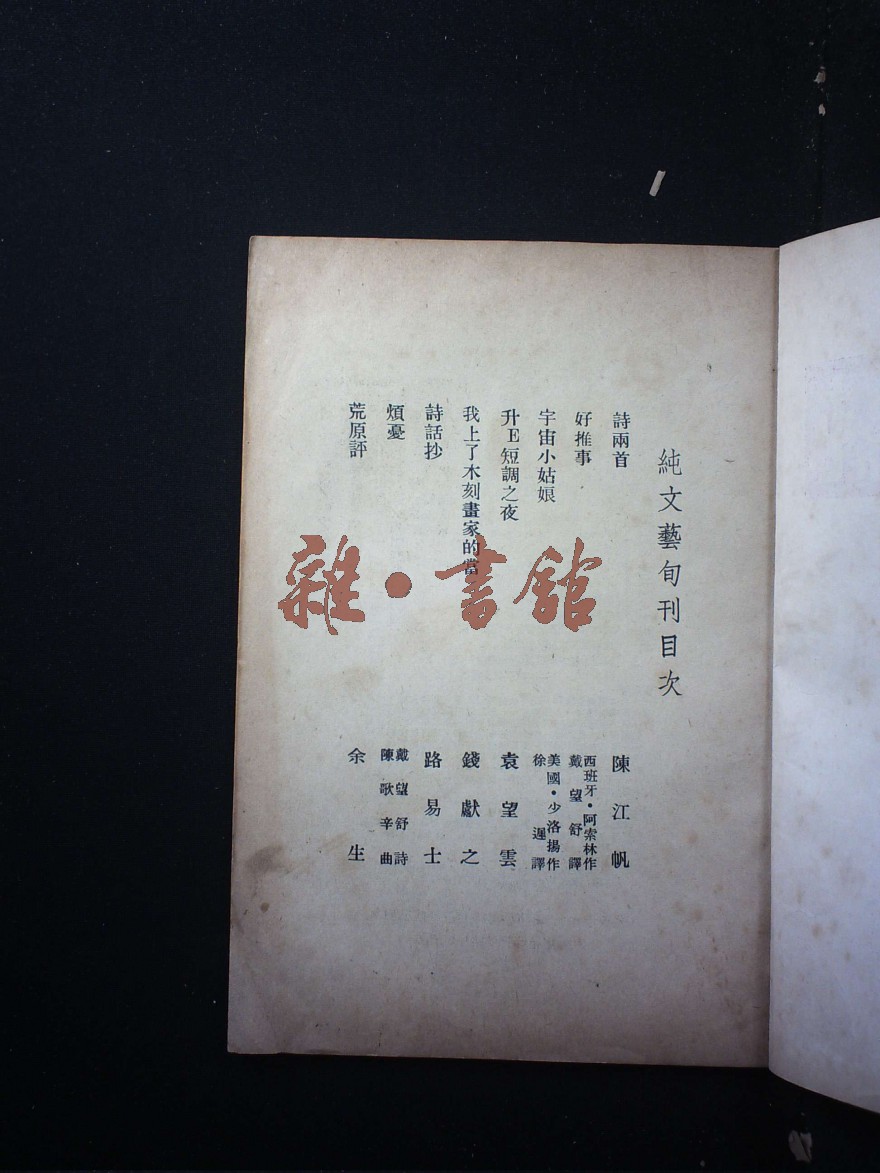 純文藝旬刊目次
詩兩首 陳江帆
好推事 西班牙·阿索林作 戴望舒譯
宇宙小姑娘 美國·少洛揚作 徐遲譯
升E短調之夜 袁望雲
我上了木刻畫家的當 錢獻之
詩話抄 路易士
煩憂 戴望舒詩 陳歌辛曲
荒原評 余生
雜·書館